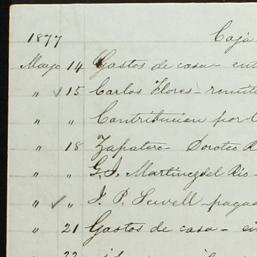 Caja
1877
Mayo 14 Gastos de casa - ent
" ✓ 15 Carlos Flores - remit
" " Contribucion por
" 18 Zapatero - Doroteo R
" " G. S. Martinez del Rio -
" ✓ " J. P. Sewell - pagad
" 21 Gastos de casa -
" 22